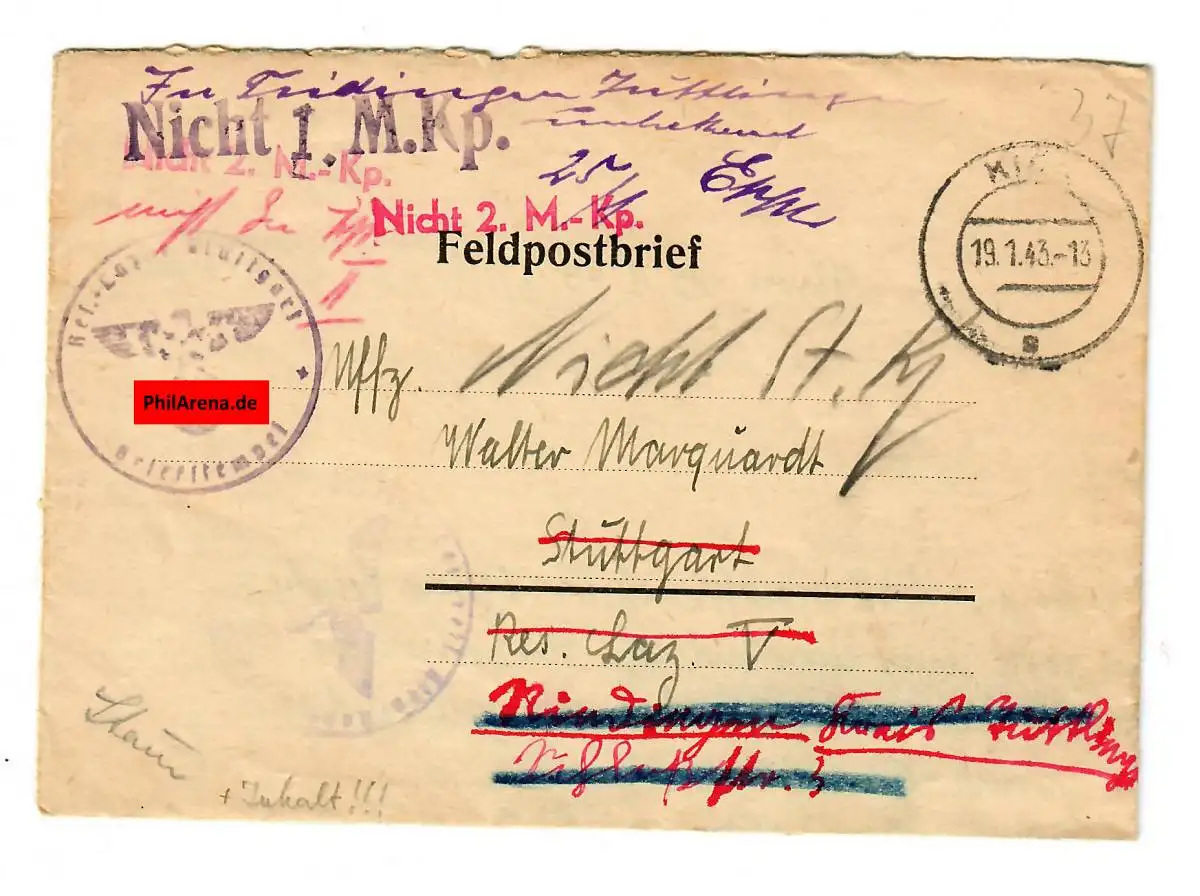 In Fridingen Tuttlingen
Nicht 1. M.Kp.
unbekannt
Nicht 2. M.-Kp.
25/1
37
Nicht 2. M.-Kp.
II
Feldpostbrief
19.1.43.-13
Res.-Laz. Stuttgart
Briefstempel
PhilArena.de
Uffz. Nicht St. Kp
Walter Marquardt
Stuttgart
Res. Laz. V
Kreis Tuttlingen
+ Inhalt!!!